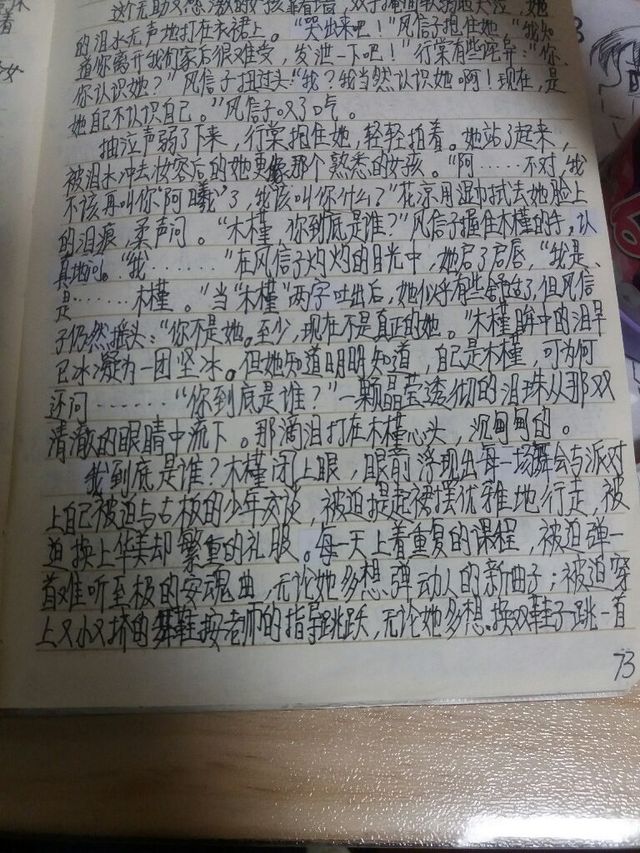 这个无助又感激的女孩靠着墙，双手掩面软弱地哭泣，她
的泪水无声地打在衣裙上。“哭出来吧！”风信子抱住她“我知
道你离开我们家后很难受，发泄一下吧！”行棠有些诧异：“你、
你认识她？”风信子扭过头：“我？我当然认识她啊！现在，是
她自己不认识自己。”风信子叹了口气。
抽泣声弱了下来，行棠抱住她，轻轻拍着。她站了起来，
被泪水冲去妆容后的她更像那个熟悉的女孩。“阿……不对，我
不该再叫你“阿曦”了，我该叫你什么？”花凉用湿巾拭去她脸上
的泪痕，柔声问。“木槿，你到底是谁？”风信子握住木槿的手，认
真地问。“我………”在风信子灼灼的目光中，她启了启唇，“我是、
是……木槿。”当“木槿”两字吐出后，她似乎有些舒过了，但风信
子仍然摇头：“你不是她。至少，现在不是真正的她。”木槿眸中的泪早
已冰凝为一团坚冰。但她知道明明知道，自己是木槿，可为何
还问………“你到底是谁？”一颗晶莹透彻的泪珠从那双
清澈的眼睛中流下。那滴泪打在木槿心头，沉甸甸的。
我到底是谁？木槿闭上眼，眼前浮现出每一场舞会与派对
上自己被迫与古板的少年交谈，被迫提起裙摆优雅地行走，被
迫换上华美却繁重的礼服。每一天上着重复的课程，被迫弹一
首难听至极的安魂曲，无论她多想弹动人的新曲子；被迫穿
上又小又挤的舞鞋按老师的指导跳跃，无论她多想换双鞋子跳一首
73